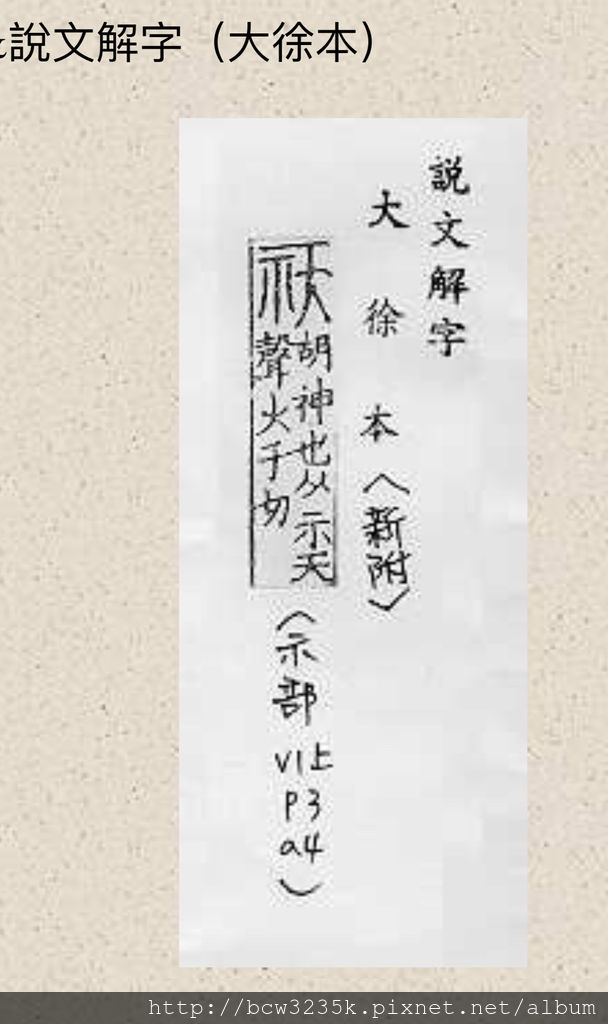 說文解字（大徐本）
說文解字
大徐本〈新附〉
祆胡神也从示天
聲火千切
〈示部
V1上
P3
a4〉
http://bcw3235k.pixnet.net/album